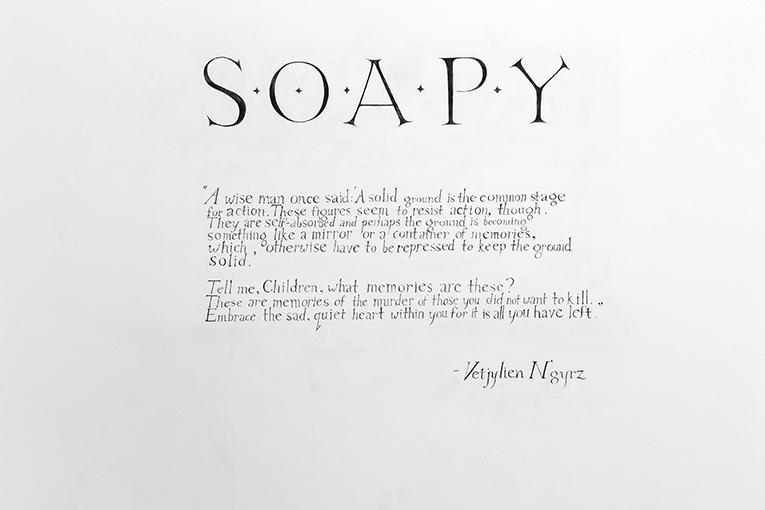 S·O·A·P·Y
"A wise man once said: 'A solid ground is the common stage
for action. These figures seem to resist action, though.
They are self-absorbed and perhaps the ground is becoming
something like a mirror or a container of memories,
which, otherwise have to be repressed to keep the ground
solid.
Tell me, Children, what memories are these?
These are memories of the murder of those you did not want to kill. „
Embrace the sad, quiet heart within you for it is all you have left.
- Vetjylien N'gyrz